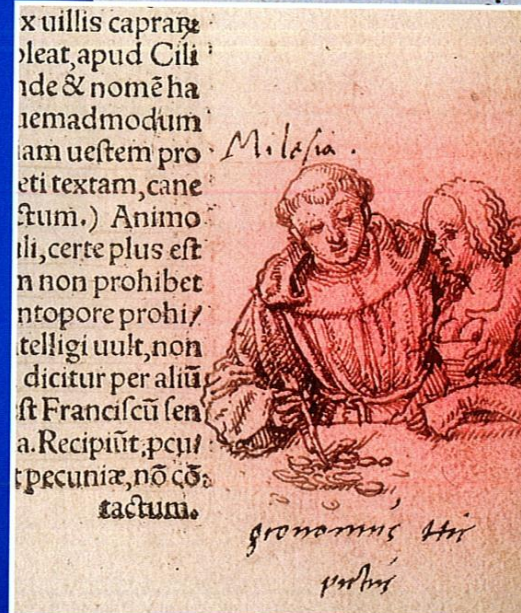 x uillis caprarꝝ
oleat, apud Cili
nde & nomē ha
uemadmodum
iam uestem pro
eti textam, cane
ctum.) Animo
uli, certe plus est
n non prohibet
ntopore prohi/
telligi uult, non
dicitur per aliū
st Franciscū sen
a. Recipiūt ꝓcul
t pecuniæ, nō cō
tactum.
Milesia.
hic
pictus